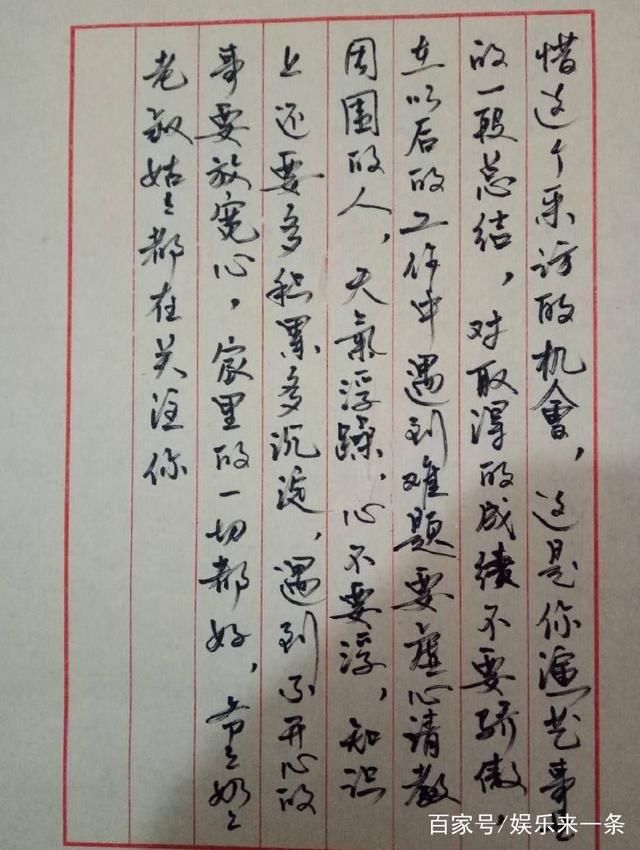 惜这个采访的机會，这是你演艺事业
的一段总结，对取得的成绩不要骄傲，
在以后的工作中遇到难题要虚心请教
周围的人，天氣浮躁，心不要浮，知识
上还要多积累多沉淀，遇到不开心的
事要放宽心，家里的一切都好，爷〻奶〻
老叔姑〻都在关注你
百家号/娱乐来一条